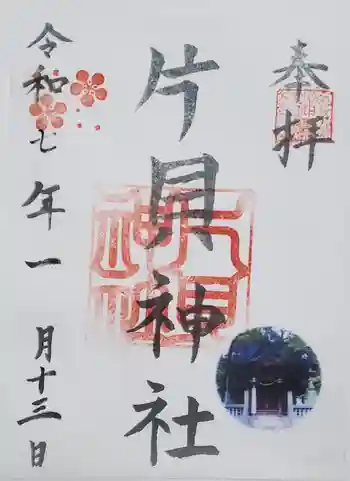 奉拝
片貝神社
令和七年一月十三日